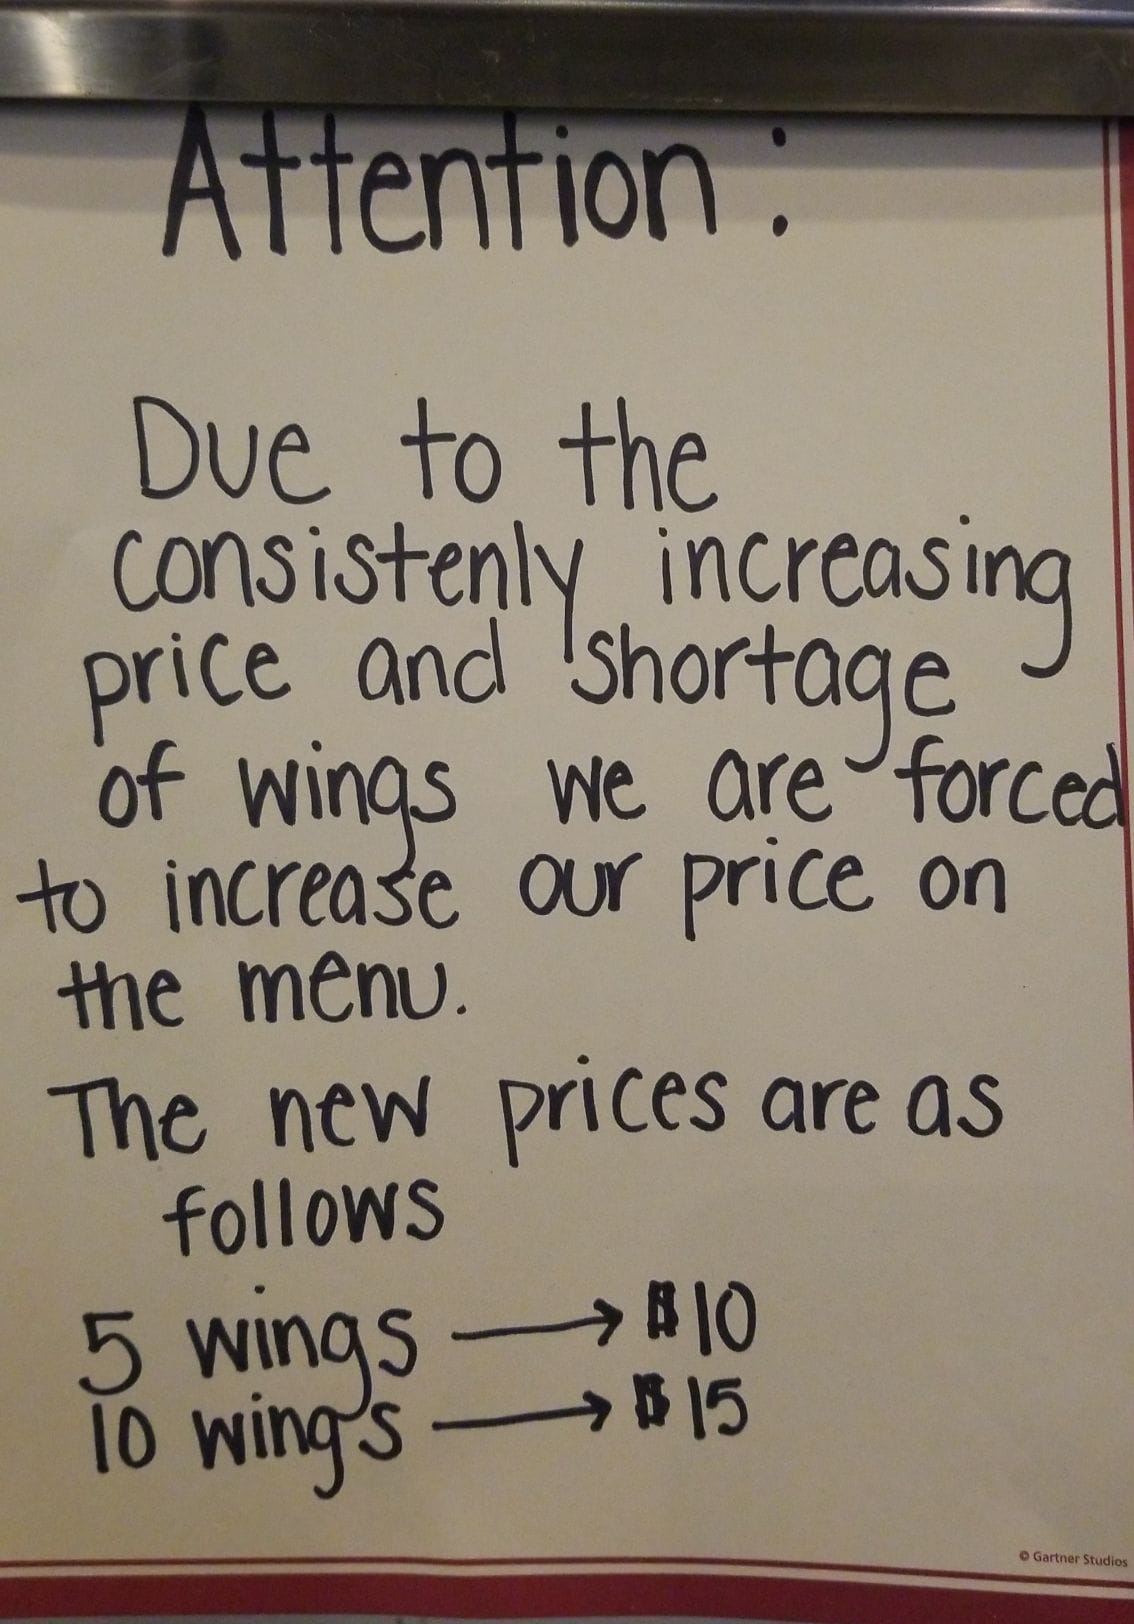 Attention:
Due to the
consistenly increasing
price and shortage
of wings we are forced
to increase our price on
the menu.
The new prices are as
follows
5 wings → $10
10 wings → $15
© Gartner Studios